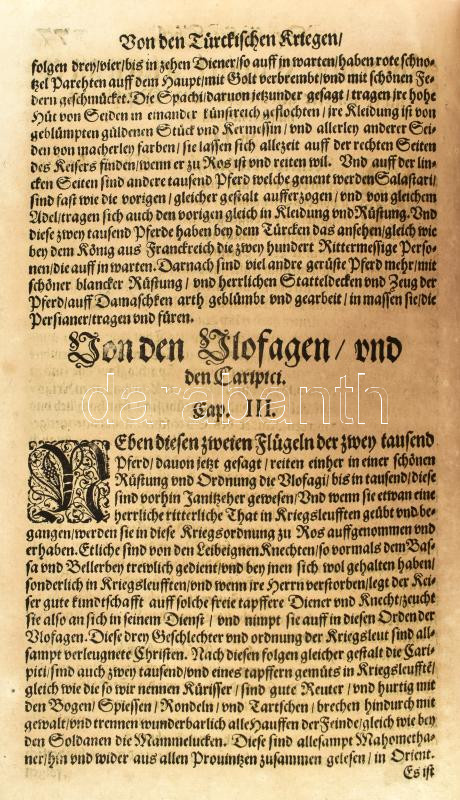 Von den Türckischen Kriegen/
folgen drey/vier/bis in zehen Diener/so auff jn warten/haben rote schno-
tzel Parehten auff dem Haupt/mit Golt verbrembt/vnd mit schönen Fe-
dern geschmücket. Die Spachi/daruon jetzunder gesagt/tragen jre hohe
Hüt von Seiden in einander künstreich geflochten/jre Kleidung ist von
geblümpten güldenen Stück vnd Kermessin/vnd allerley anderer Sei-
den von mácherley farben/sie lassen sich allezeit auff der rechten Seiten
des Keisers finden/wenn er zu Ros ist vnd reiten wil. Vnd auff der lin-
cken Seiten sind andere tausend Pferd welche genent werden Salastari/
sind fast wie die vorigen/gleicher gestalt aufferzogen/vnd von gleichem
Adel/tragen sich auch den vorigen gleich in Kleidung vnd Rüstung. Vnd
diese zwey tausend Pferde haben bey dem Türcken das ansehen/gleich wie
bey dem König aus Franckreich die zwey hundert Rittermessige Perso-
nen/die auff jn warten. Darnach sind viel andre gerüste Pferd mehr/mit
schöner blancker Rüstung/vnd herrlichen Statteldecken vnd Zeug der
Pferd/auff Damaschken arth geblümbt vnd gearbeit/in massen sie/die
Persianer/tragen vnd füren.
Von den Vlofagen/vnd
den Caripici.
Cap. III.
NEben diesen zweien Flügeln der zwey tausend
Pferd/dauon jetzt gesagt/reiten einher in einer schönen
Rüstung vnd Ordnung die Vlofagi/bis in tausend/diese
sind vorhin Janitzeher gewesen/Vnd wenn sie etwan eine
herrliche ritterliche That in Kriegsleufften geübt vnd be-
gangen/werden sie in diese Kriegsordnung zu Ros auffgenommen vnd
erhaben. Etliche sind von den Leibeignen Knechten/so vormals dem Bas-
sa vnd Bellerbey trewlich gedient/vnd bey jnen sich wol gehalten haben/
sonderlich in Kriegsleufften/vnd wenn jre Herrn verstorben/legt der Kei-
ser gute kundtschafft auff solche freie tapffere Diener vnd Knecht/zeucht
sie also an sich in seinem Dienst/vnd nimpt sie auff in diesen Orden der
Vlofagen. Diese drey Geschlechter vnd ordnung der Kriegsleut sind all-
sampt verleugnete Christen. Nach diesen folgen gleicher gestalt die Cari-
piti/sind auch zwey tausend/vnd eines tapffern gemüts in Kriegsleuffté/
gleich wie die so wir nennen Kürisser/sind gute Reuter/vnd hurtig mit
den Bogen/Spiessen/Rondeln/vnd Tartschen/brechen hindurch mit
gewalt/vnd trennen wunderbarlich alle Hauffen der Feinde/gleich wie bey
den Soldanen die Mammelucken. Diese sind allesampt Mahometha-
ner/hin vnd wider aus allen Prouintzen zusammen gelesen/in Orient.
Es ist
darabanth